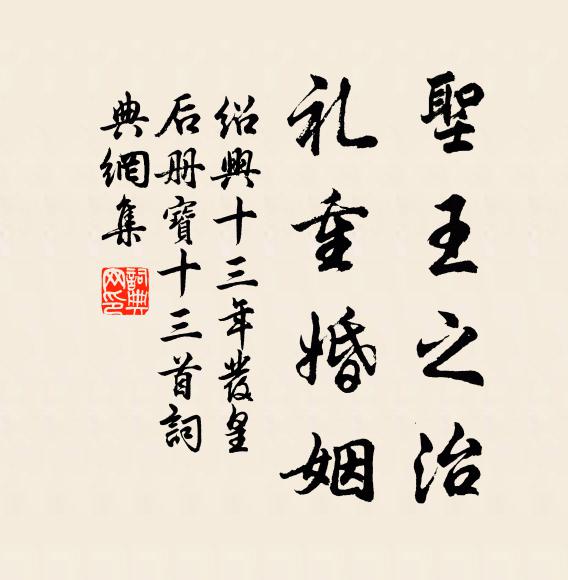 聖王之治
礼重婚姻
紹興十三年發皇
后册寶十三首詞
典網集
詞典網印